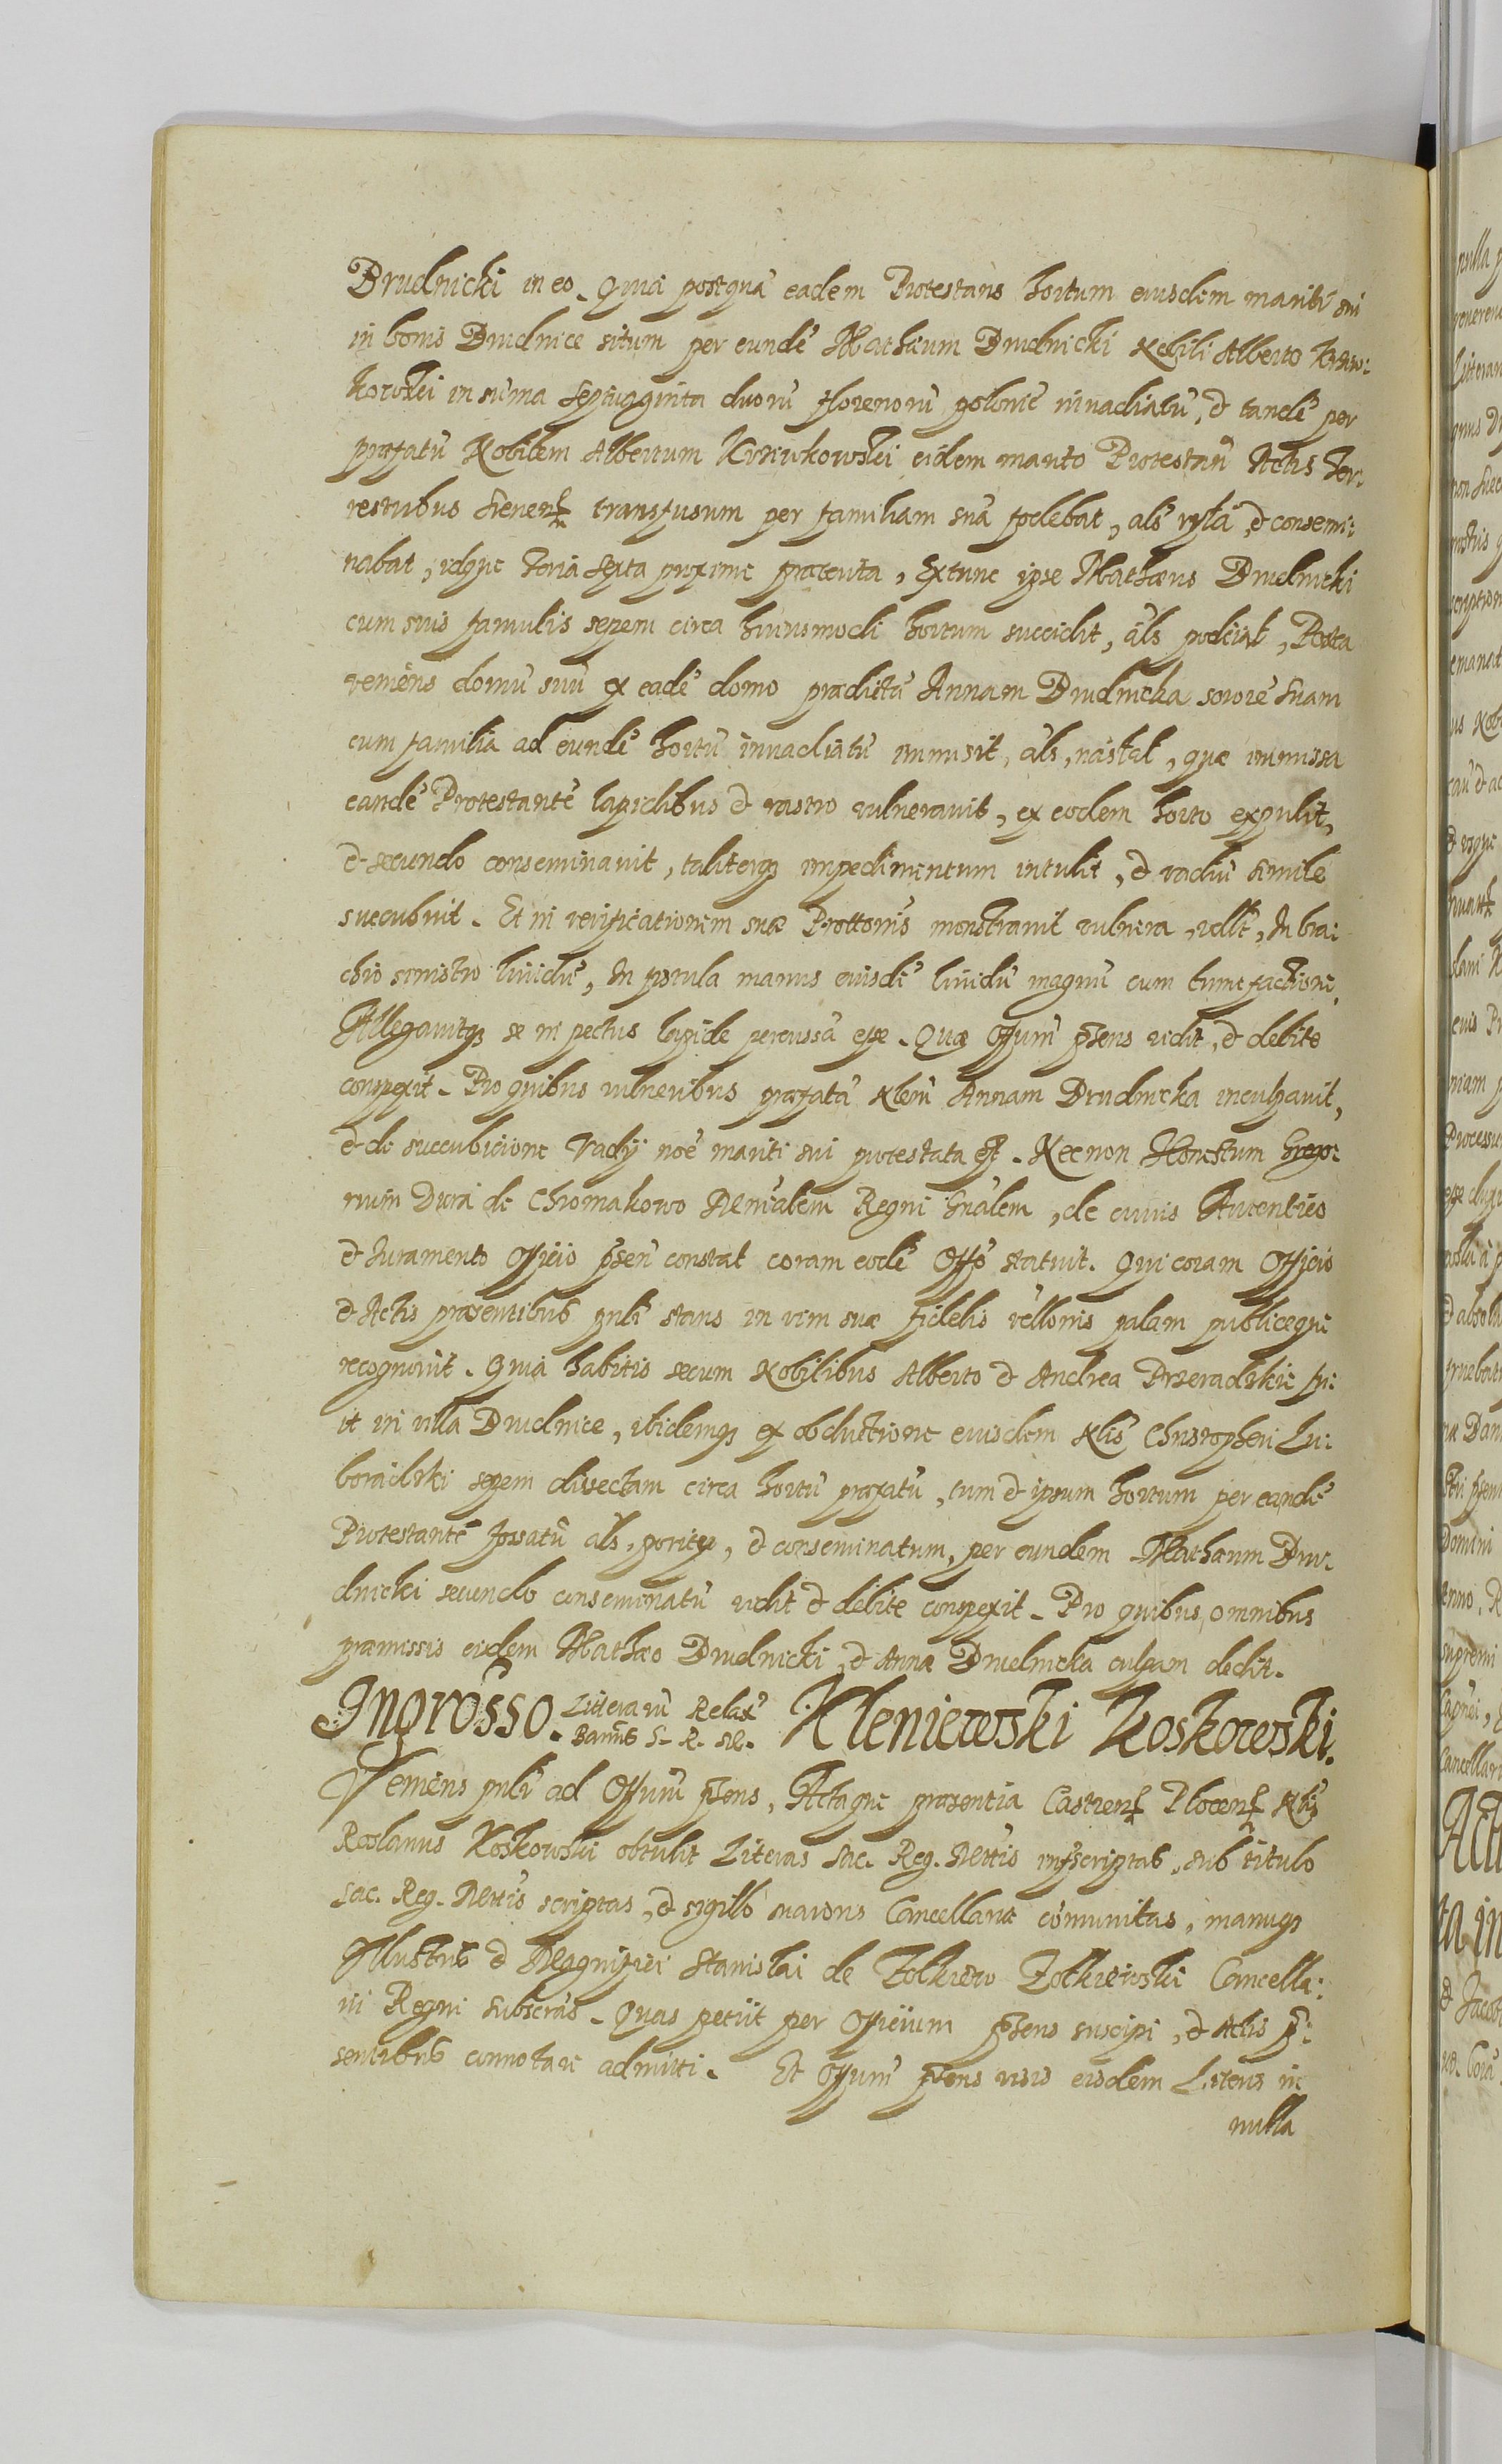 Drudnicki in eo. Quia postquã eadem Protestans hortum eiusdem mariti sui
in bonis Drudnice situm per eundẽ Mathæum Drudnicki Nobili Alberto Krziw:
kowski in suma Septuaginta duorũ florenorũ polonic̃ inuadiatũ, & tandẽ per
præfatũ Nobilem Albertum Krziwkowski eidem marito Protestan̄ Actis Ter:
restribus transfusum per familiam suã fodebat, als ryła, & consemi:
nabat, idque feria sexta proxime præterita, Extunc ipse Mathæus Drudnicki
cum suis famulis sepem circa huiusmodi hortum succidit, als podciął, Postea
veniens domũ suũ ex eadẽ domo prædictã Annam Drudnicka sororẽ suam
cum familia ad eundẽ hortũ inuadiatũ immisit, als, nasłał, quæ immissa
eandẽ Protestantẽ lapidibus & rastro vulnerauit, ex eodem horto expulit,
& secundo conseminauit, taliterq3 impedimentum intulit, & vadiũ simile
succubuit. Et in verificationem suæ Prottonis monstrauit vulnera, vdlt, In bra:
chio sinistro liuidũ, In fistula manus eiusdẽ liuidũ magnũ cum tumefactione.
Allegauitq3 se in pectus lapide percussã esse. Quæ Offiũm p̃sens vidit, & debite
conspexit. Pro quibus vulneribus præfatã Nlem̃ Annam Drudnicka inculpauit,
& de succubicione Vadij noẽ mariti sui protestata est. Necnon Honestum Grego:
rium Dura de Chromakowo Mẽnialem Regni Gnãlem, de cuius Autentico
& Iuramento Officio p̃sen̄ constat coram eodẽ Offõ statuit. Qui coram Officio
& Actis præsentibus pnlr̃ stans in vim suæ fidelis rellonis palam publiceque
recognouit. Quia habitis secum Nobilibus Alberto & Andrea Przeradzkie fu:
it in villa Drudnice, ibidemq3 ex obductione eiusdem Nlis Christopheri Lu:
boradzki sepem dissectam circa hortũ præfatũ, tum & ipsum hortum per eandẽ
Protestantẽ fossatũ als, poryty, & conseminatum, per eundem Mathæum Dru:
dnicki secundo conseminatũ vidit & debite conspexit. Pro quibus omnibus
præmissis eidem Mathæo Drudnicki, & Annæ Drudnicka culpam dedit.
Ingrosso. Litterarũ Relax̃ Bannis S. R. M. Kleniewski Koskowski.
Veniens pnlr̃ ad Offiũm p̃sens, Actaque præsentia Castren̄ Plocen̄ Nlis
Roslanus Koskowski obtulit Literas Sac. Reg. Mttis infscriptas, sub titulo
Sac. Reg. Mttis scriptas, & sigillo maioris Cancellariæ cõmunitas, manuq3
Illustris & Magnifici Stanislai de Zolkiew Zolkiewski Cancella:
rij Regni subscrãs. Quas petijt per Officium p̃sens suscipi, & Actis p̃:
sentibus connotari admitti. Et Offiũm p̃sens visis eisdem Literis in
nulla